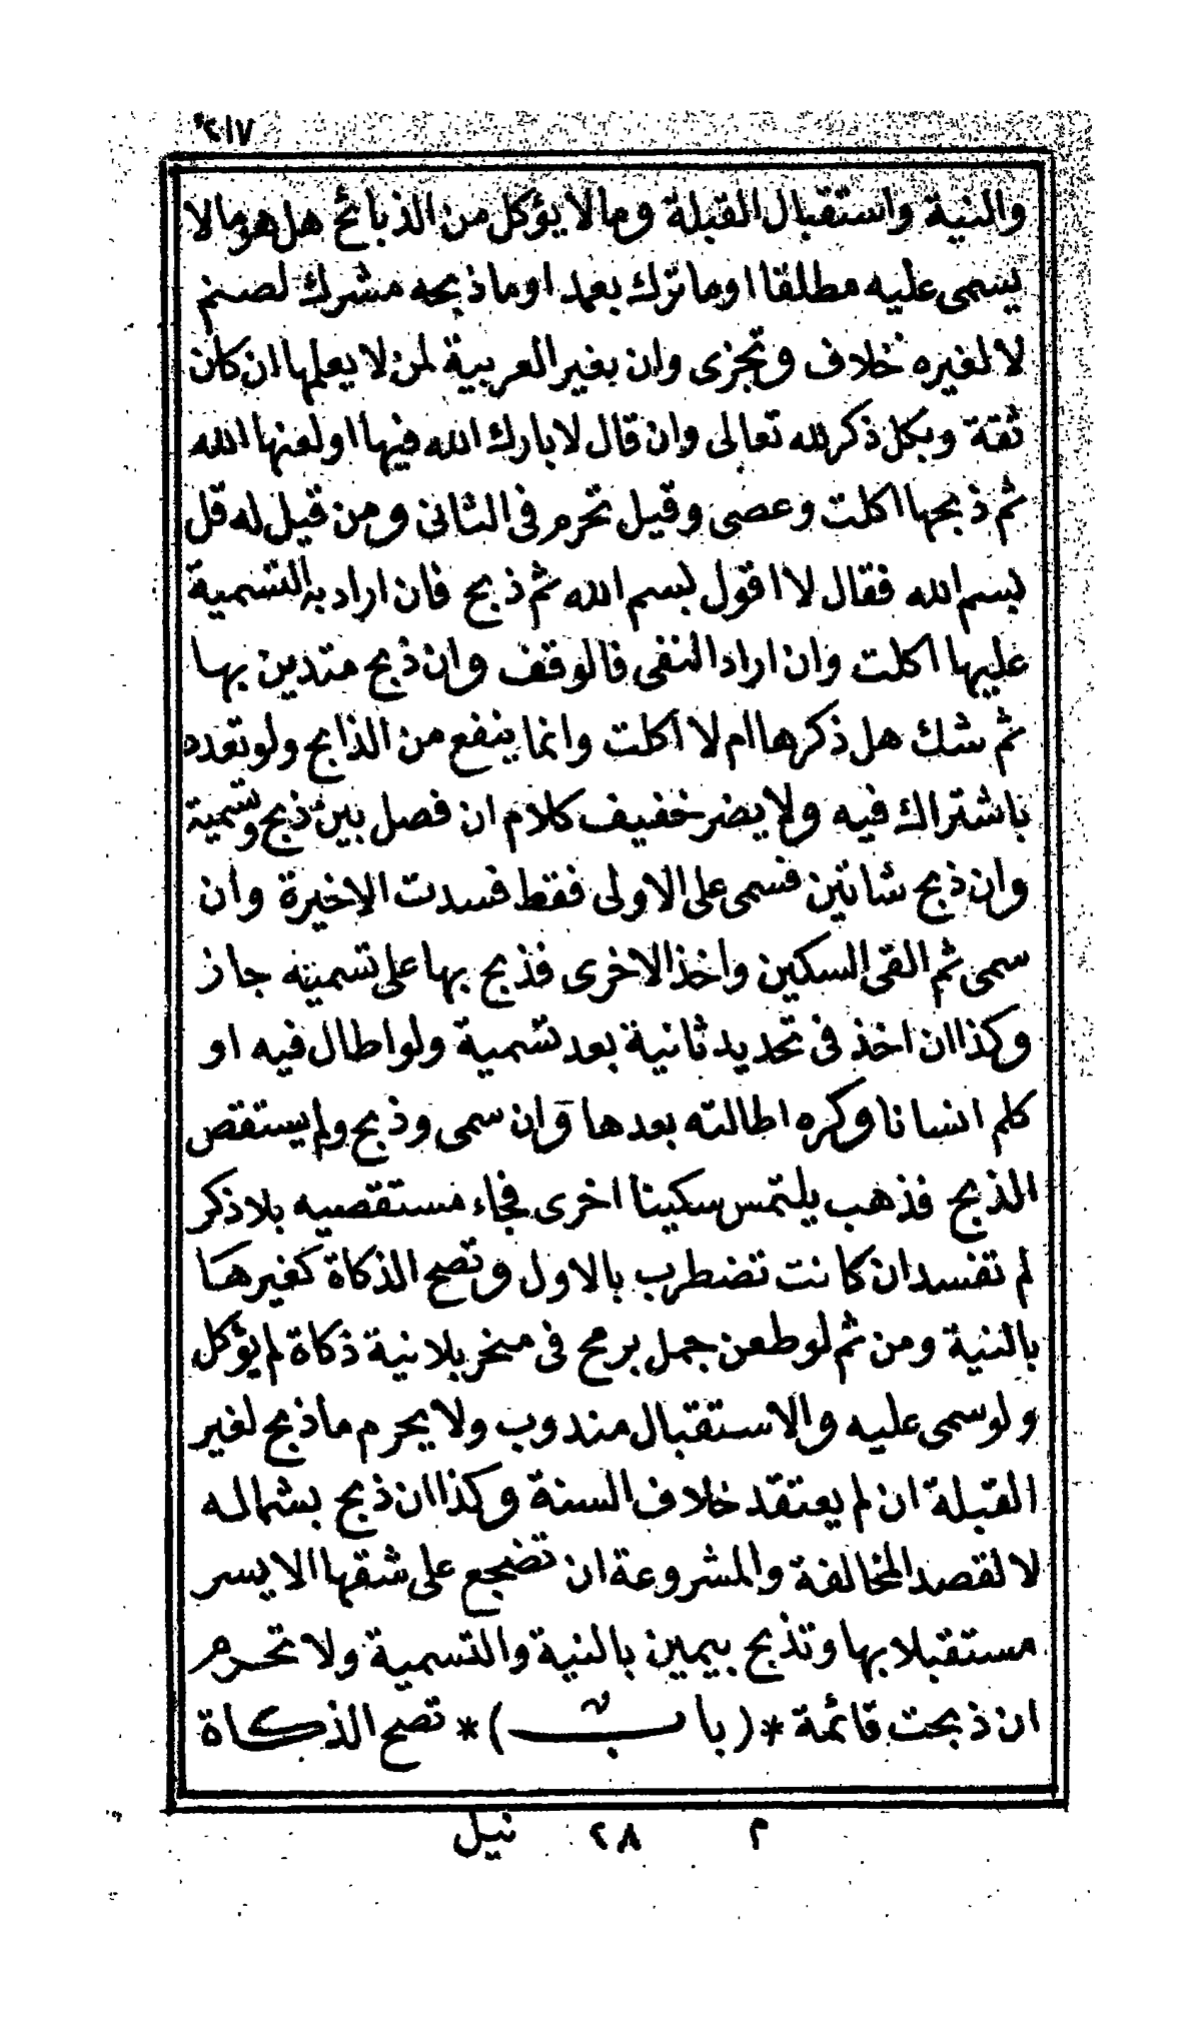 ٢١٧
والنية واستقبال القبلة ومالا يؤكل من الذبائح هل هو مالا
يسمى عليه مطلقا اوما ترك بعمد اوما ذبحه مشرك لصنم
لا لغيره خلاف وتجزى وان بغير العربية لمن لا يعلمها ان كان
ثقة وبكل ذكر لله تعالى وان قال لا بارك الله فيها اولعنها الله
ثم ذبحها اكلت وعصى وقيل تحرم فى الثانى ومن قيل له قل
بسم الله فقال لا اقول بسم الله ثم ذبح فان اراد به التسمية
عليها اكلت وان اراد النفى فالوقف وان ذبح متدين بها
ثم شك هل ذكرها ام لا اكلت وانما ينفع من الذابح ولو تعدد
باشتراك فيه ولا يضر خفيف كلام ان فصل بين ذبح وتسمية
وان ذبح شاتين فسمى على الاولى فقط فسدت الاخيرة وان
سمى ثم القى السكين واخذ الاخرى فذبح بها على تسميته جاز
وكذا ان اخذ فى تحديد ثانية بعد تسمية ولو اطال فيه او
كلم انسانا وكره اطالته بعدها وان سمى وذبح ولم يستقص
الذبح فذهب يلتمس سكينا اخرى فجاء مستقصيه بلا ذكر
لم تفسد ان كانت تضطرب بالاول وتصح الذكاة كغيرها
بالنية ومن ثم لو طعن جمل برمح فى منخر بلا نية ذكاة لم يؤكل
ولو سمى عليه والاستقبال مندوب ولا يحرم ما ذبح لغير
القبلة ان لم يعتقد خلاف السنة وكذا ان ذبح بشماله
لا لقصد المخالفة والمشروعة ان تضجع على شقها الايسر
مستقبلا بها وتذبح بيمين بالنية والتسمية ولا تحرم
ان ذبحت قائمة *(باب)* تصح الذكاة
م ٢٨ نيل